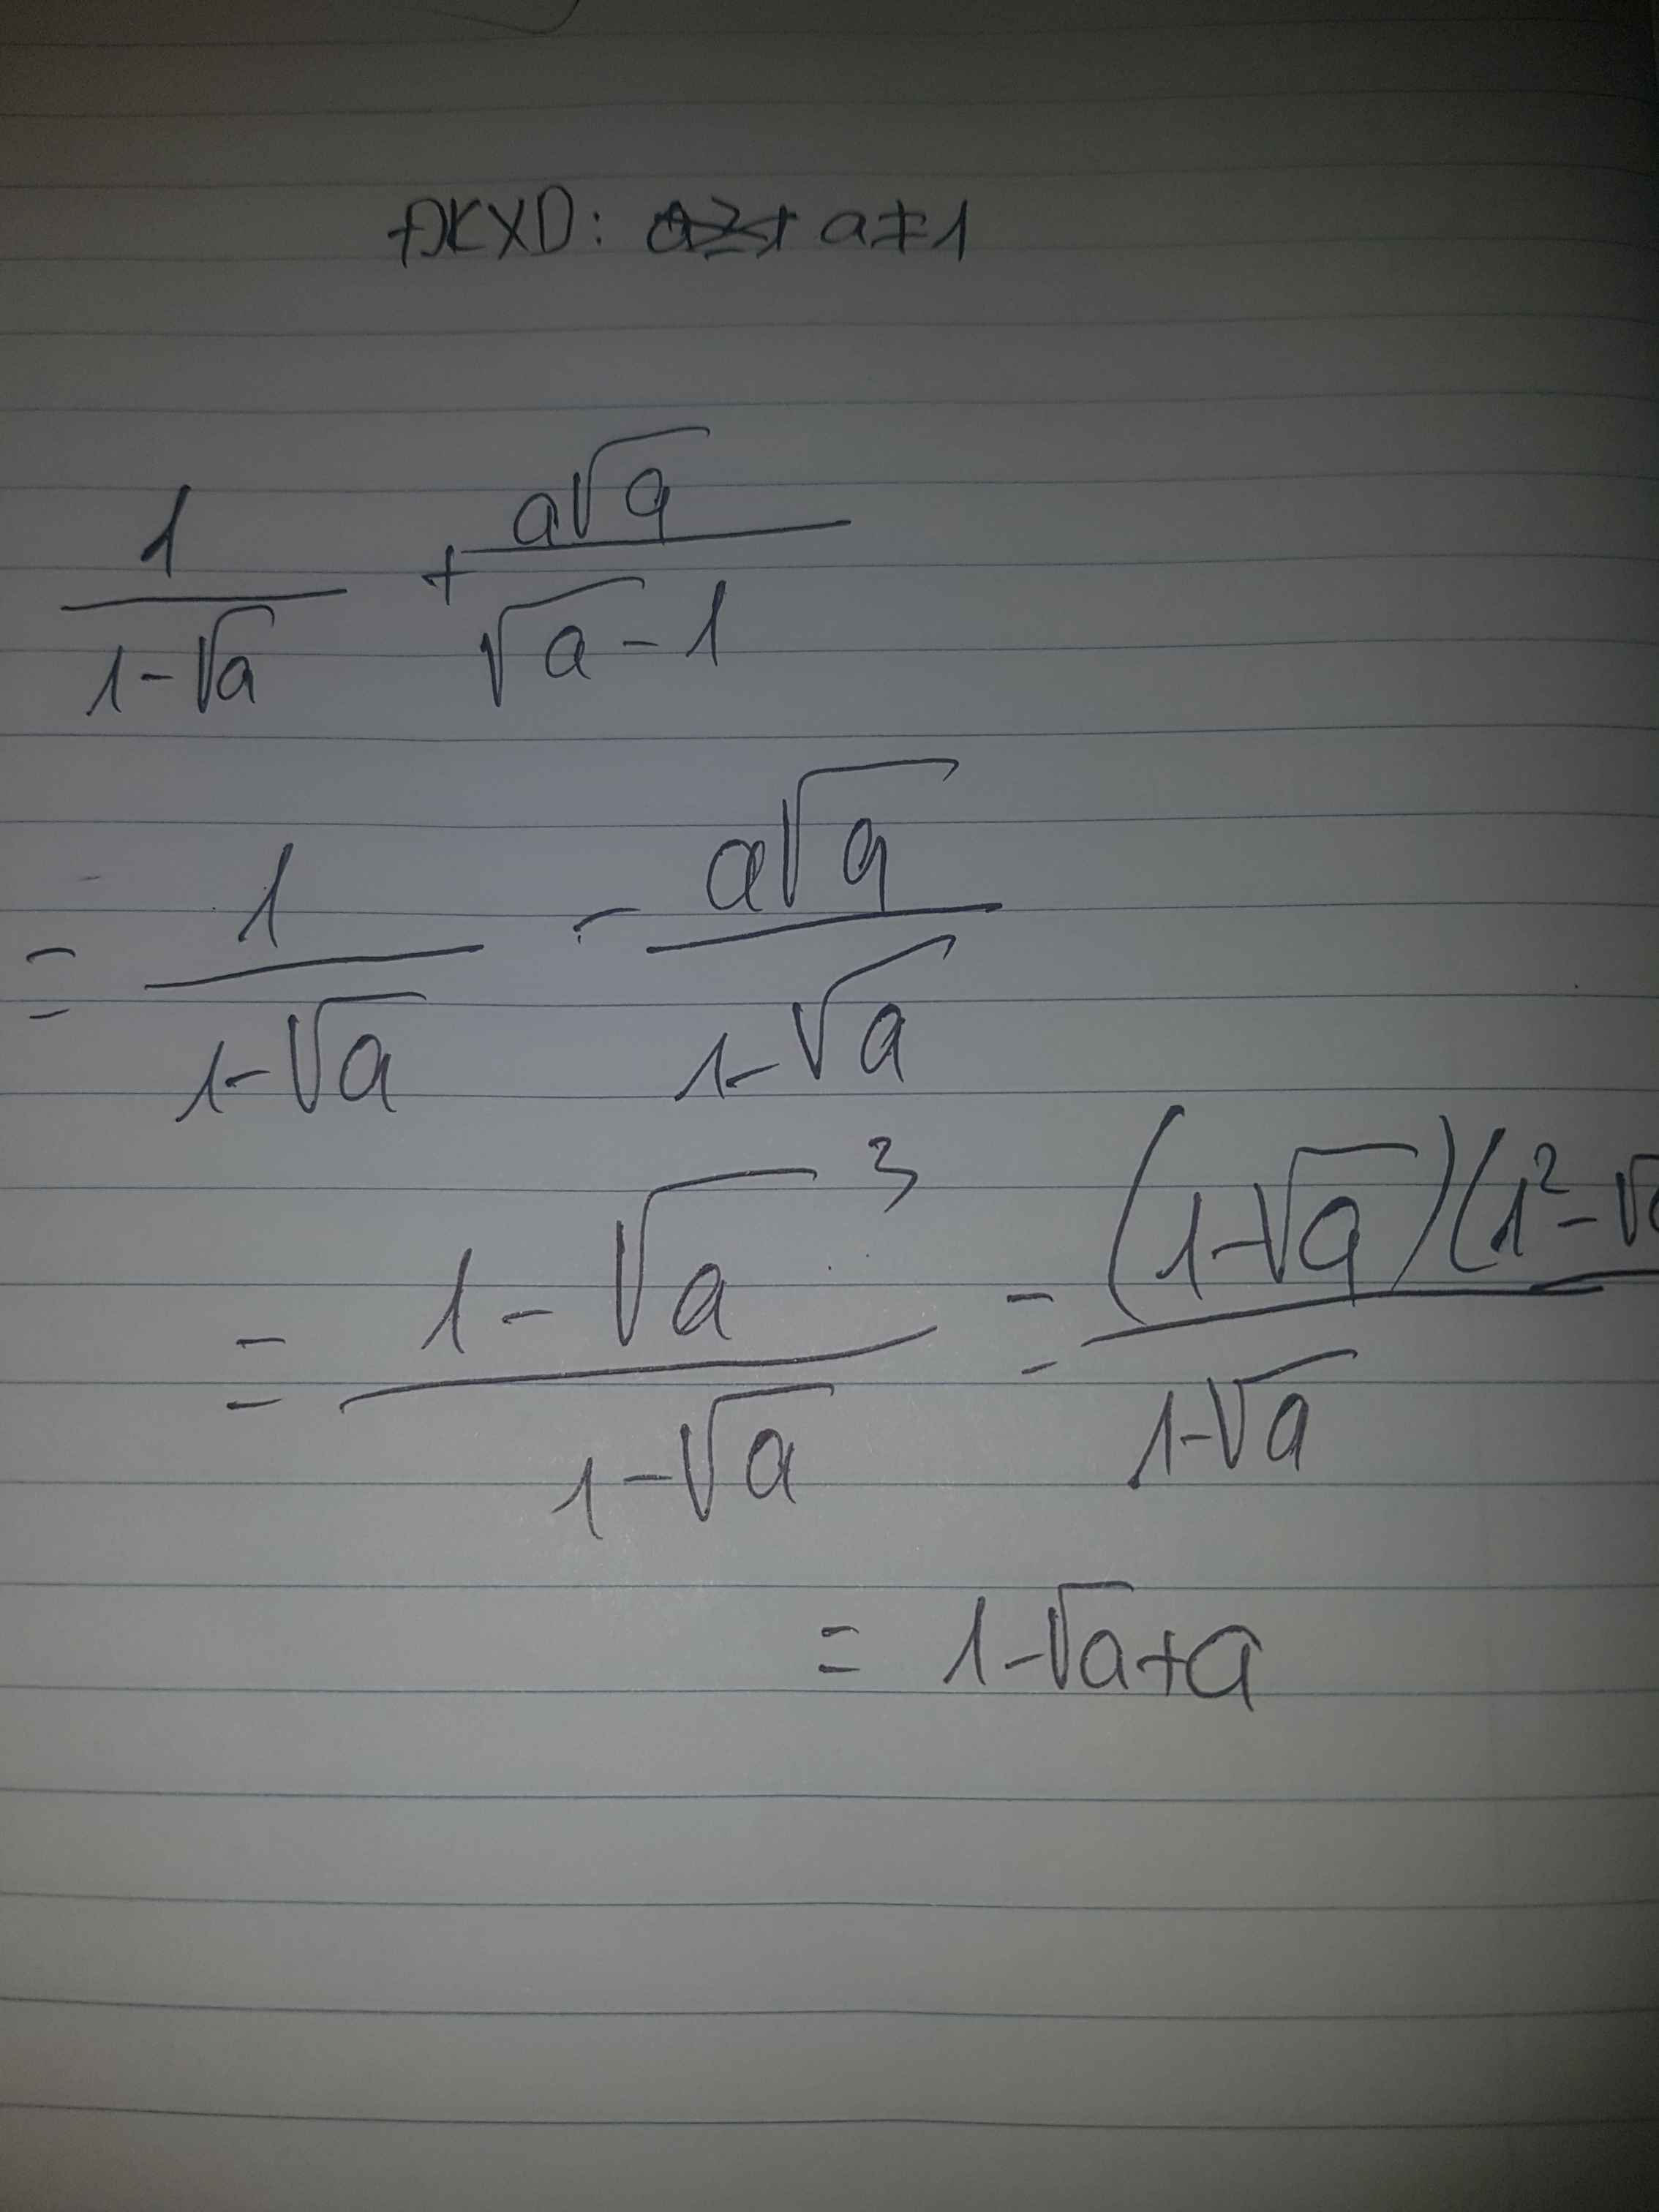 ĐKXD: a≥1 a≠1
1/(1-√a) + a√a/(√a-1)
= 1/(1-√a) - a√a/(1-√a)
= (1-√a³)/(1-√a) = (1-√a)(1²-√
/(1-√a)
= 1-√a+a